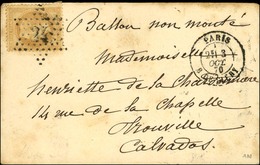 Ballon non monté
PARIS
OCT
24
Mademoiselle
henriette de la
14 rue de la Chapelle
Trouville
Calvados.